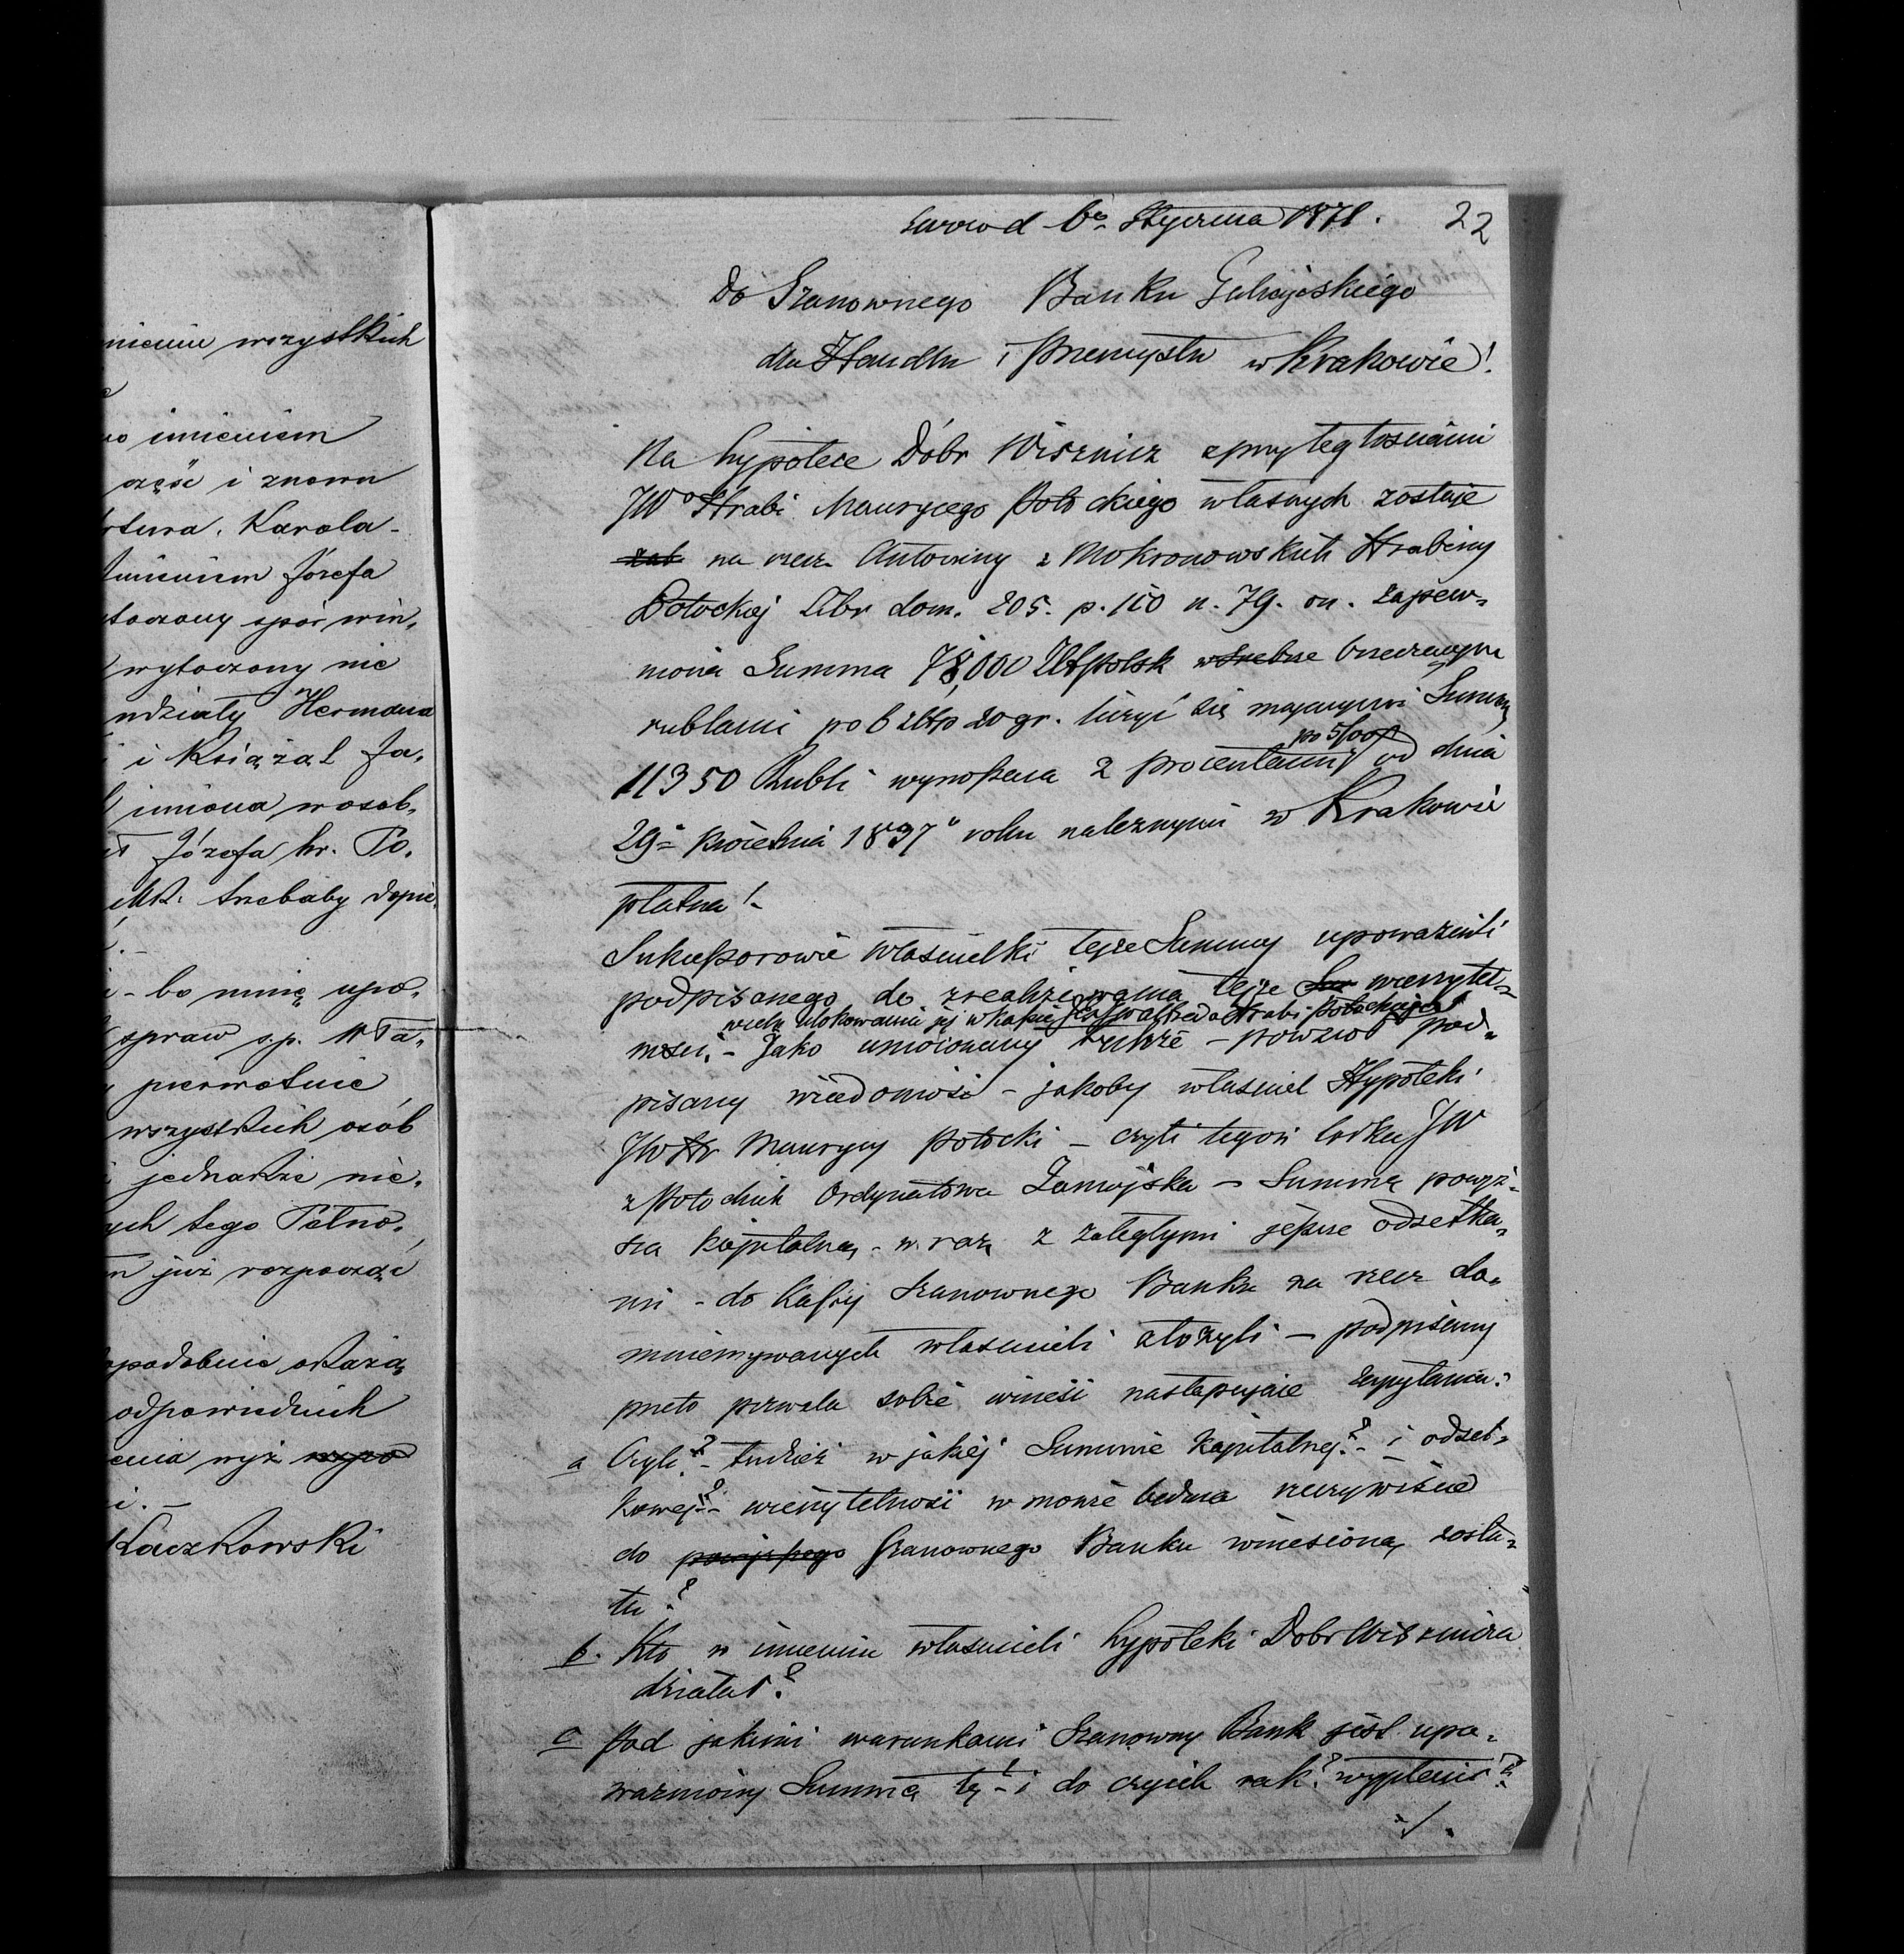 mieniu wszystkich
imieniem
część i znowu
rtura, Karola
Imieniem Józefa
toczony spór win-
wytoczony nie
udziały Hermana
i Książąt Ja-
imiona w osob-
Józefa hr. Po-
trzebaby dopie-
- bo mnię upo-
spraw s.p. 
pierwotnie
wszystkich osób
jednakże nie-
ych tego Pełno-
m już rozpocząć
opodobnie okażą
odpowiednich
enia wyż wspo
i. -
Kaczkowski
22
Lwow d 6go Stycznia 1871.
Do Szanownego Banku Galicyjskiego
dla Handlu i Przemysłu w Krakowie!
Na hypotece Dóbr Wisznicz z przyległościami
JWo Hrabi Maurycego Potockiego własnych zostaje
zab na rzecz Antoniny z Mokronowskich Hrabiny
Potockiej Libr dom. 205. p. 110 n. 79. on. zapew-
niona Summa 78,000 Złtpolsk w Srebrze brzęczącym
rublami po 6 złtp 20 gr. liczyć się mającymi Summę
po 5/00
11350 Rubli wynosząca z procentami od dnia
29o kwietnia 1837o roku należnymi w Krakowie
płatna! -
Sukcessorowie właścicielki tejże Summy upoważnili
podpisanego do zrealizowania tejże Sum wierzytel-
celu ulokowania jej w kassie Hrabi Potockiego
ności. - Jako umocowany tychże - powziął pod-
pisany wiadomość - jakoby właściciel Hypoteki
JW Hr Maurycy Potocki - czyli tegoż córka JW
z Potockich Ordynatowa Zamojska - Summę powyż-
szą kapitalną - w raz z zaległymi jeszcze odsetka-
mi - do Kassy Szanownego Banku na rzecz do-
mniemywanych właścicieli złożyli - podpisany
przeto pozwala sobie wnieść następujące zapytania:
a Czyli? - tudzież w jakiej Summie kapitalnej? - i odset-
kowej? - wierzytelność w mowie będąca rzeczywiście
do powyższego Szanownego Banku wniesioną zosta-
ła?
b. Kto w imieniu właścicieli hypoteki Dobr Wisznicza
działał?
c Pod jakimi warunkami Szanowny Bank jest upo-
ważniony Summę tę! - i do czyich rąk? wypłacić?
./.